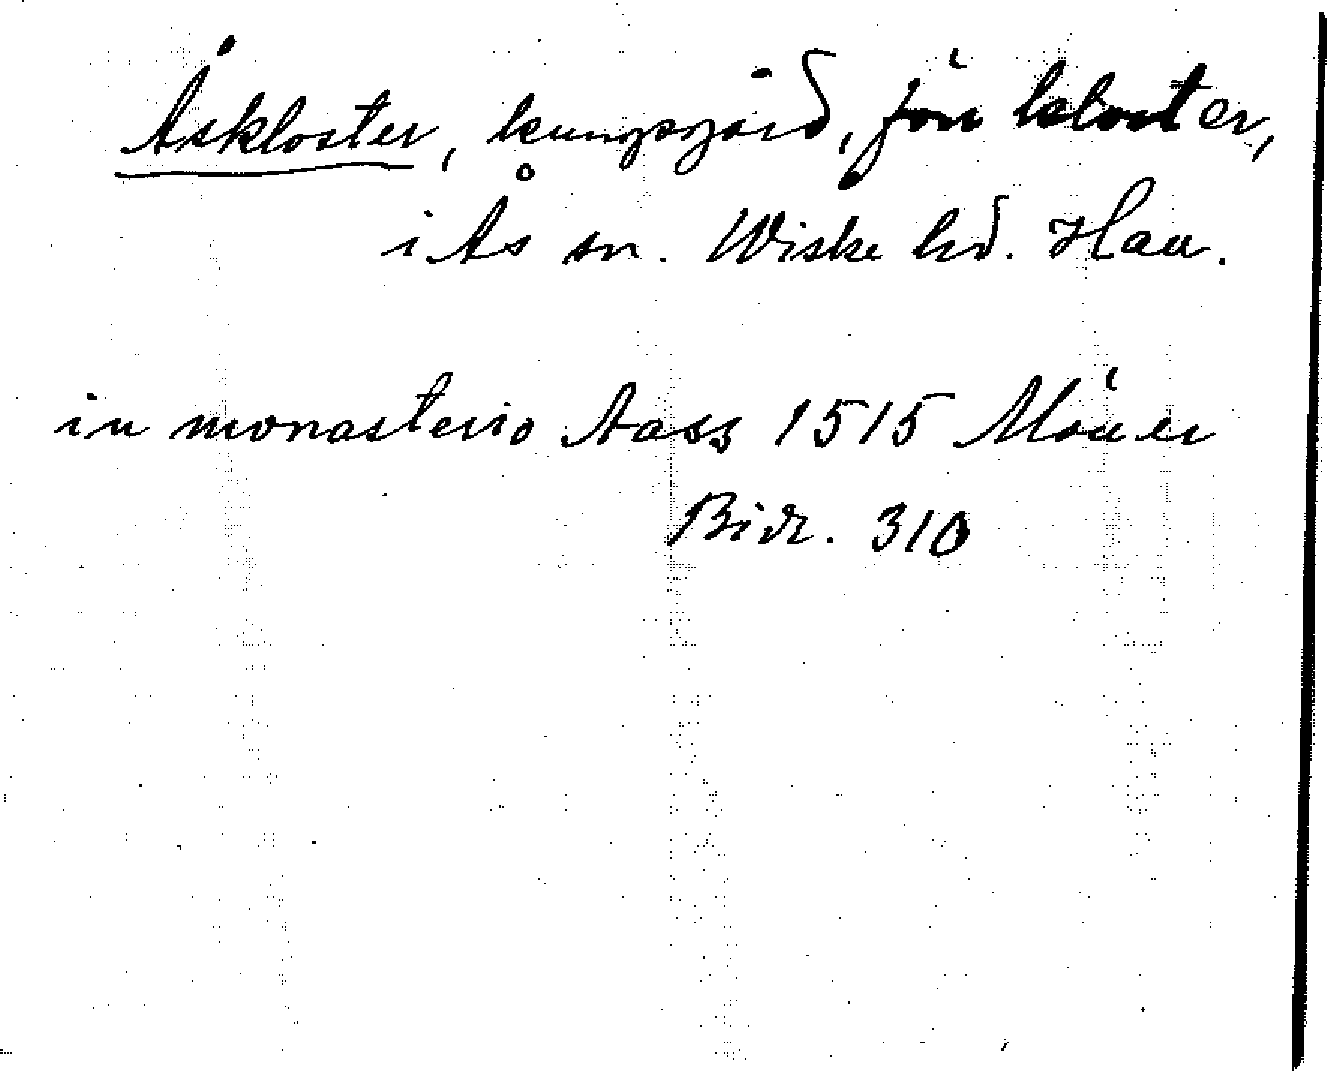 Åskloster, kungsgård, förr kloster,
i Ås sn. Wiske hd. Hall.
in monasterio Aass 1515
Bidr. 310